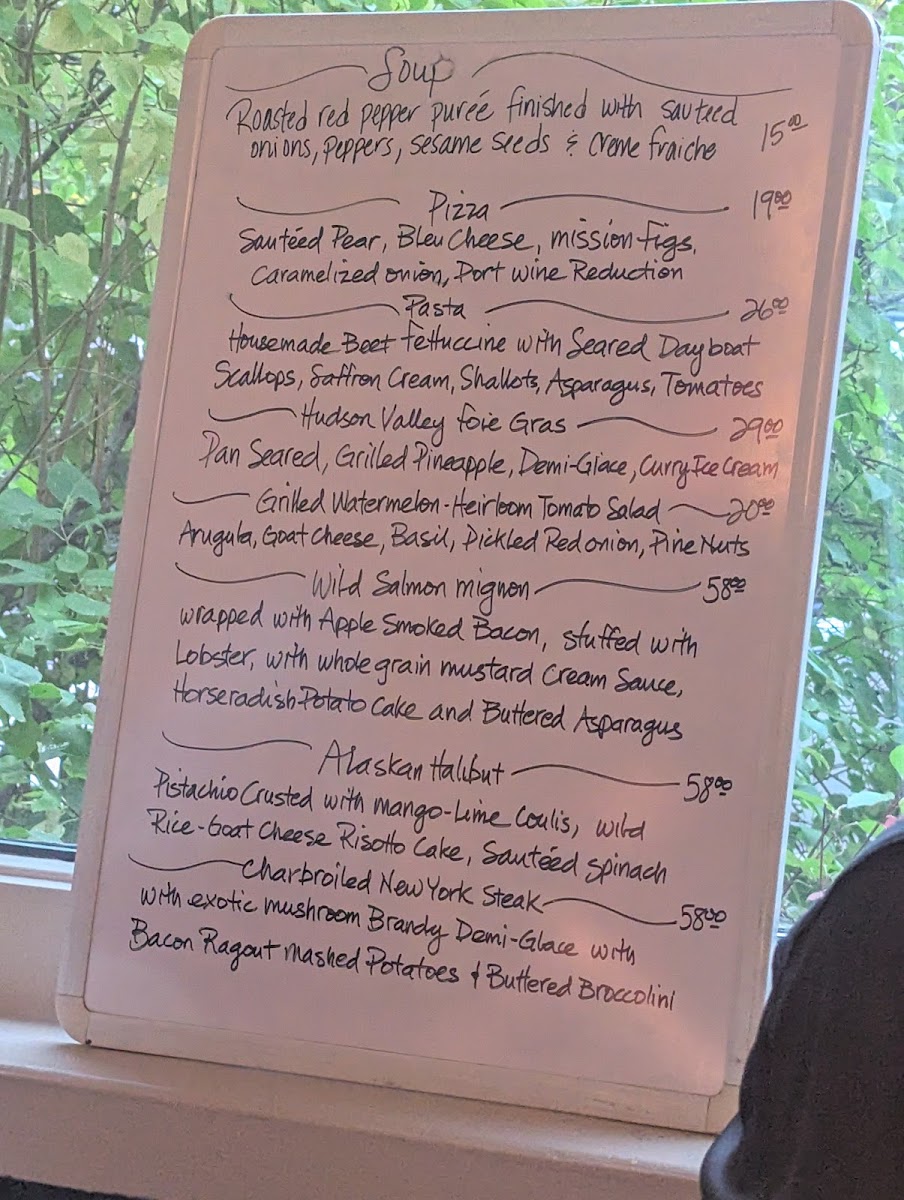 Soup
Roasted red pepper pureé finished with sauteed 15.00
onions, peppers, sesame seeds & creme fraiche
Pizza 19.00
Sautéed Pear, Bleu Cheese, mission figs,
Caramelized onion, Port wine Reduction
Pasta 26.00
Housemade Beet Fettuccine with Seared Dayboat
Scallops, Saffron Cream, Shallots, Asparagus, Tomatoes
Hudson Valley foie Gras 29.00
Pan Seared, Grilled Pineapple, Demi-Glace, Curry Ice Cream
Grilled Watermelon-Heirloom Tomato Salad 20.00
Arugula, Goat Cheese, Basil, Pickled Red onion, Pine Nuts
Wild Salmon mignon 58.00
wrapped with Apple Smoked Bacon, stuffed with
Lobster, with whole grain mustard Cream Sauce,
Horseradish-Potato Cake and Buttered Asparagus
Alaskan Halibut 58.00
Pistachio Crusted with mango-Lime Coulis, wild
Rice-Goat Cheese Risotto Cake, Sautéed spinach
Charbroiled New York Steak 58.00
with exotic mushroom Brandy Demi-Glace with
Bacon Ragout mashed Potatoes & Buttered Broccolini